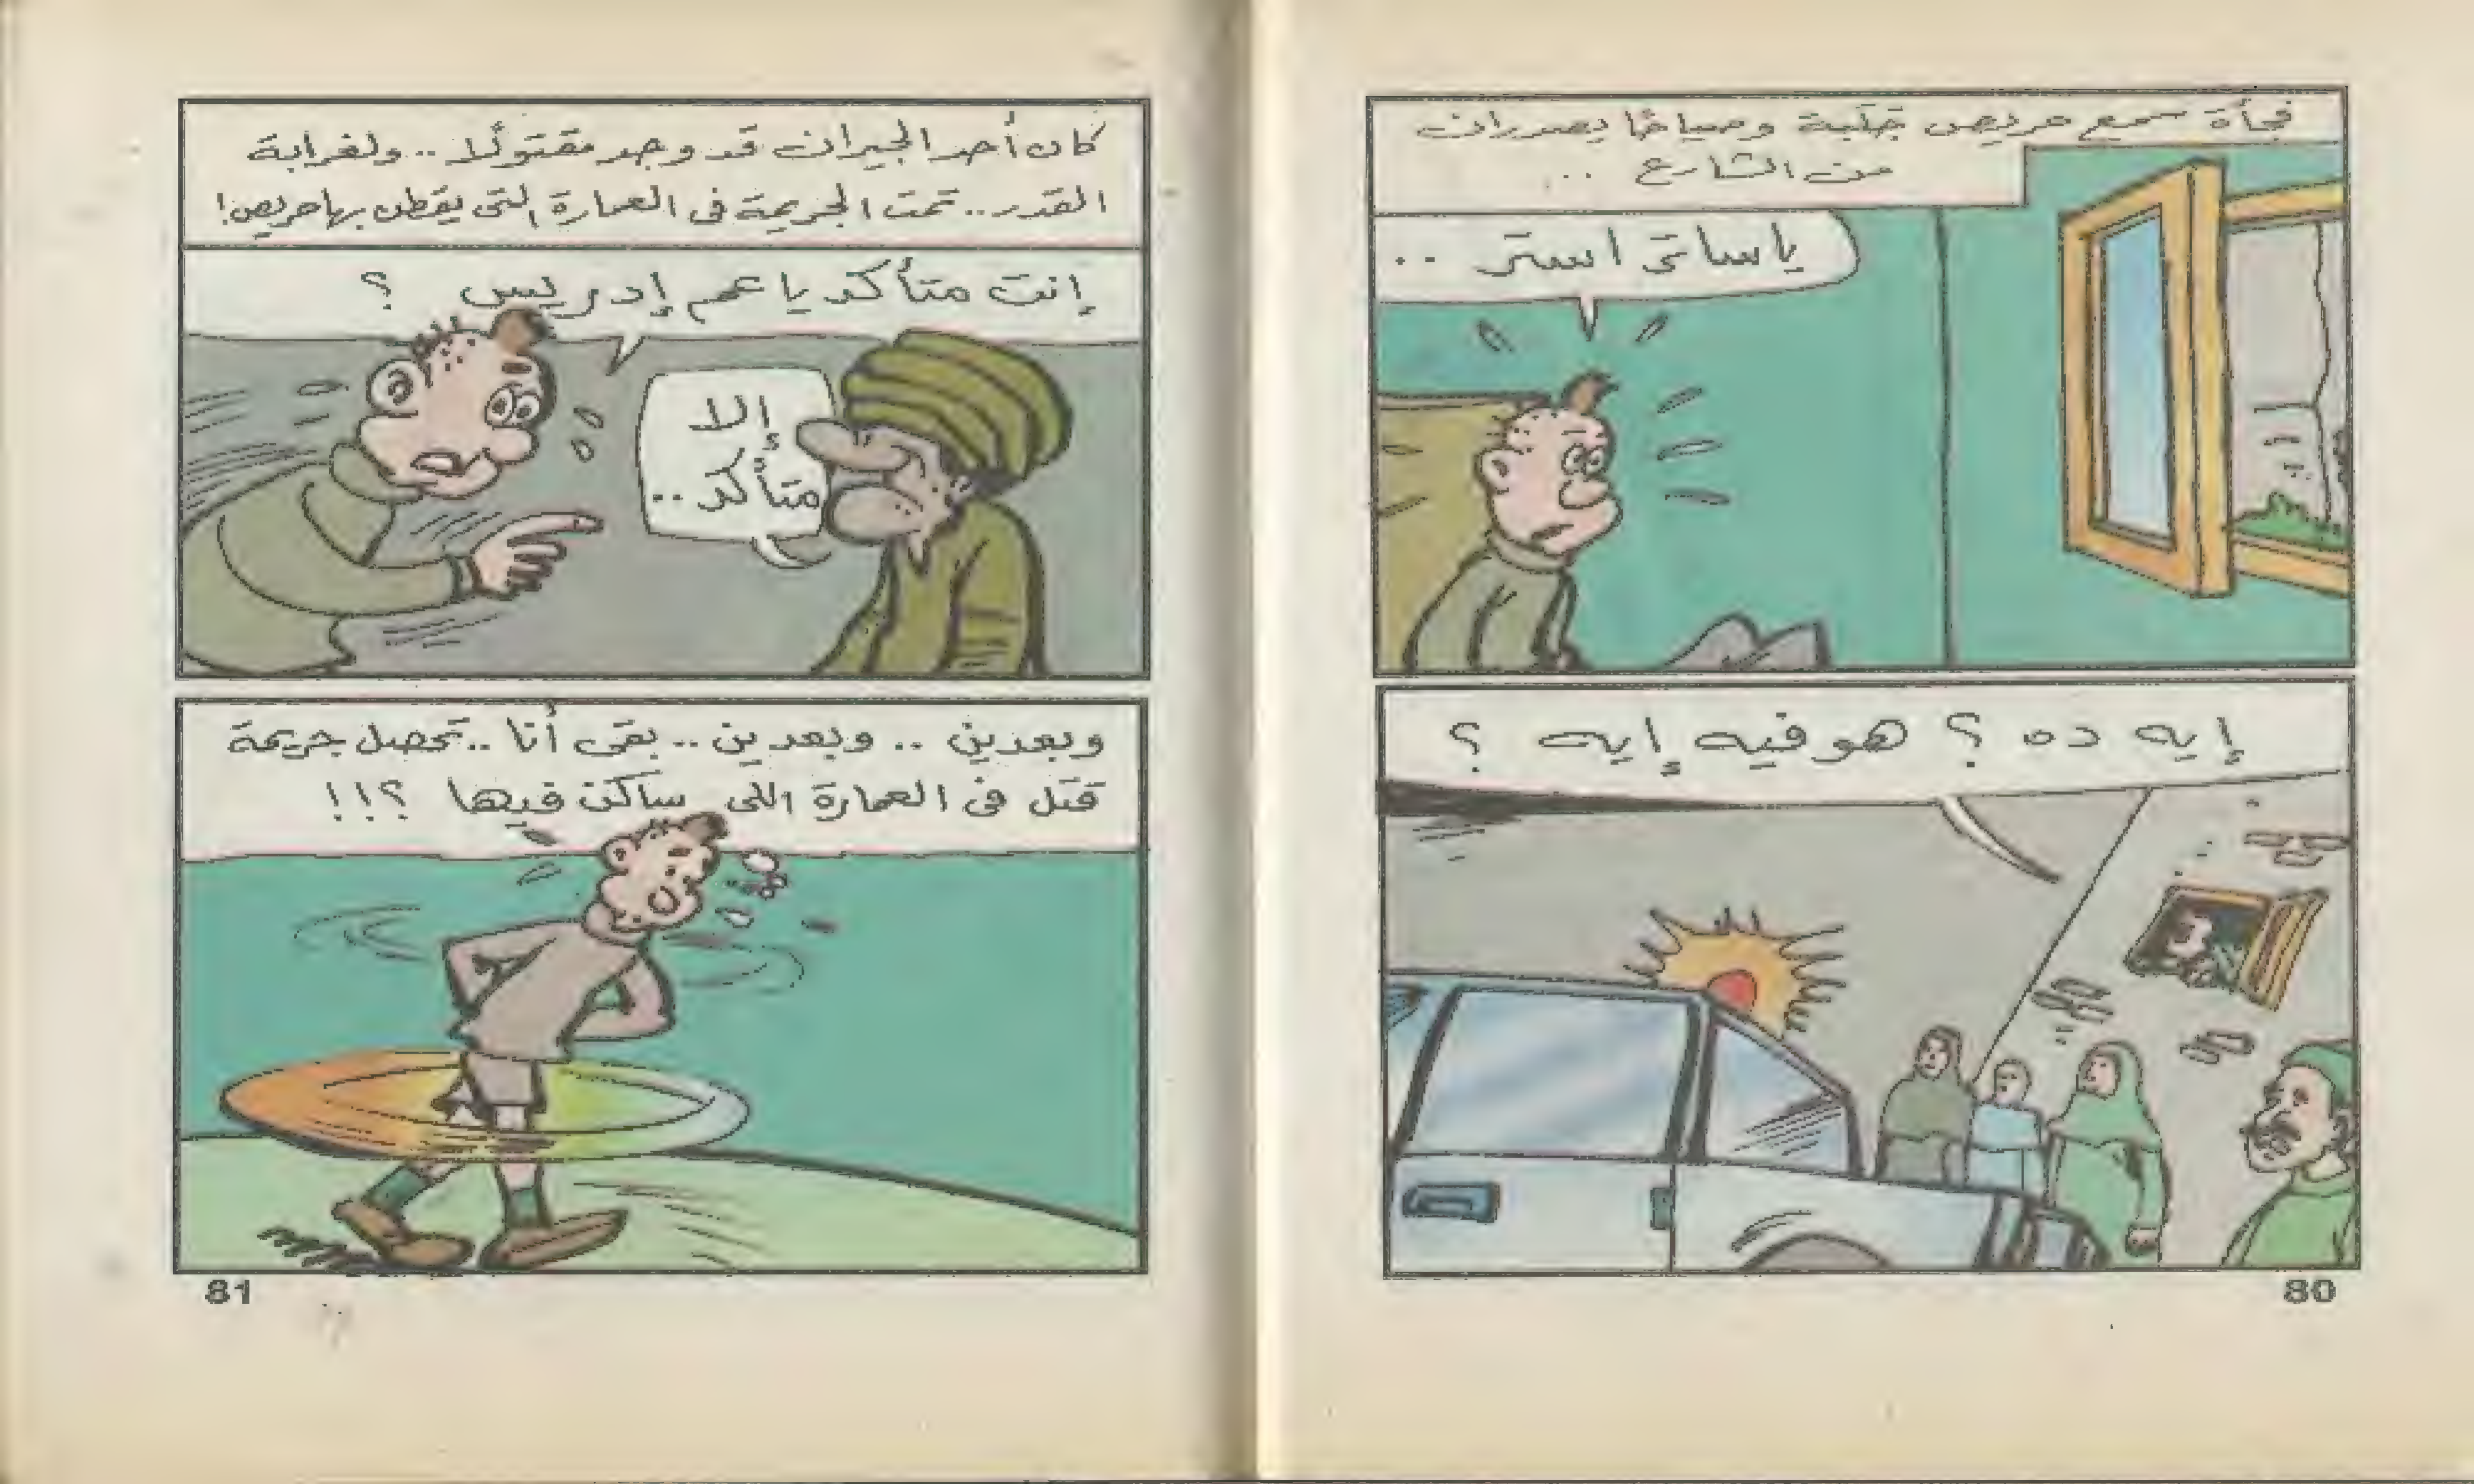 فجأة سمع حريص جَلَبة وصياحًا يصدران
من الشارع ...
ياساتر استر ..
إيه ده ؟ هو فيه إيه ؟
80
كان أحد الجيران قد وجد مقتولًا .. ولغرابة
القدر .. تمت الجريمة فى العمارة التى يقطن بها حريص !
إنت متأكد يا عم إدريس ؟
إلا
متأكد ..
وبعدين .. وبعدين .. بقى أنا .. تحصل جريمة
قتل فى العمارة اللى ساكن فيها ؟!!
81